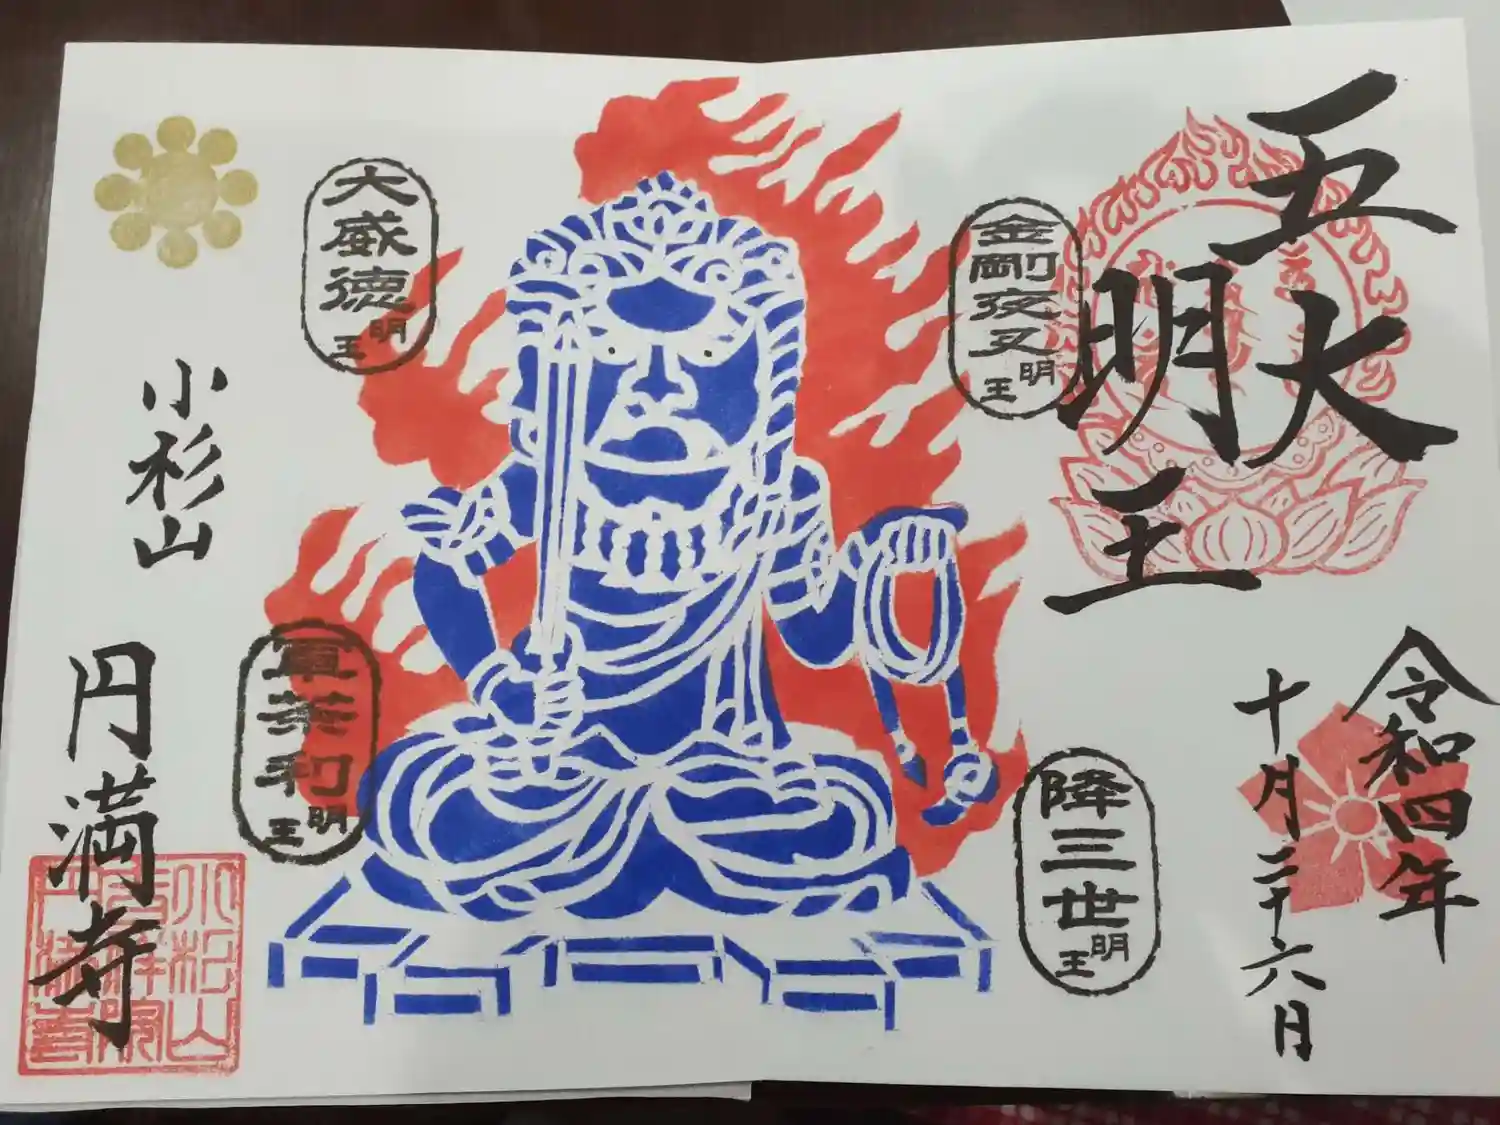 五大
明王
令和四年
十月二十六日
金剛夜叉明王
降三世明王
大威徳明王
軍荼利明王
小杉山
円満寺
小杉山
吉祥院
円満寺